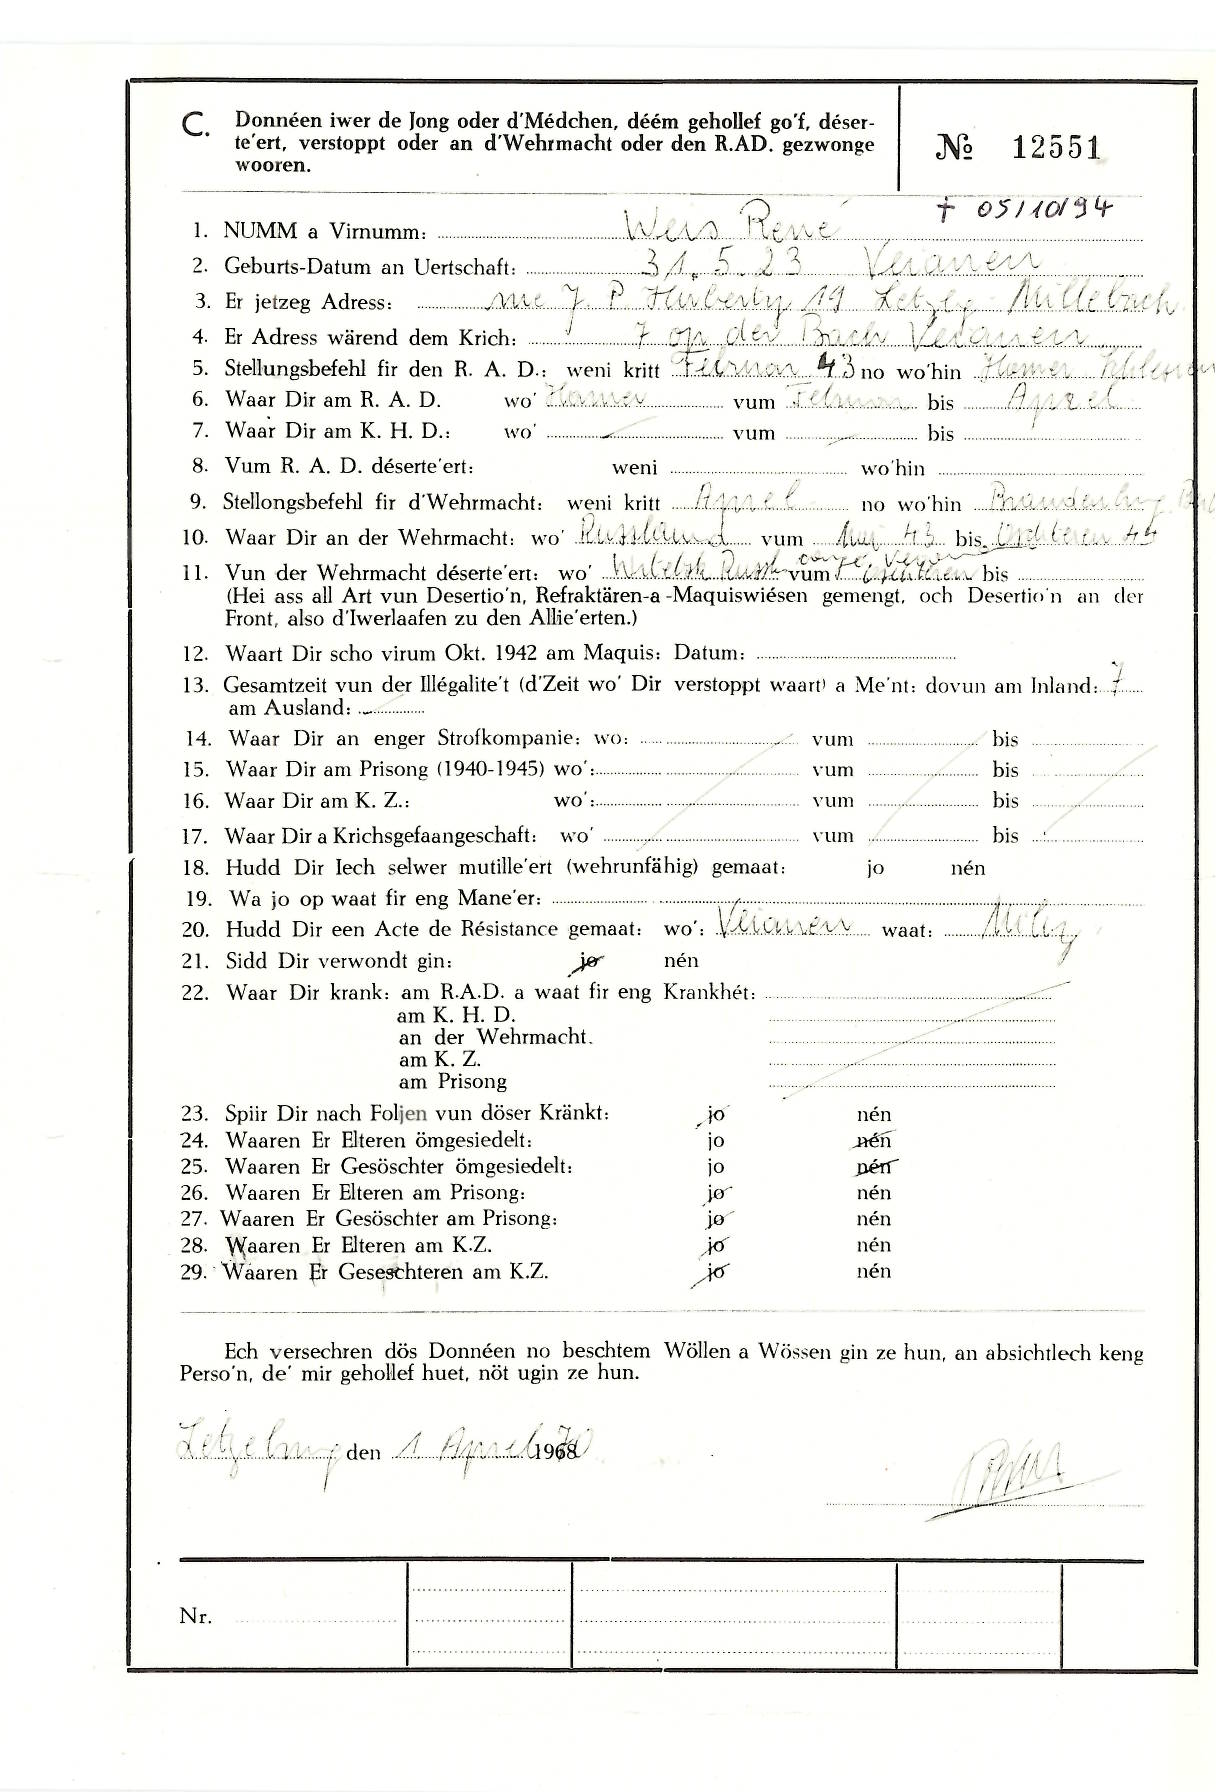 C. Donnéen iwer de Jong oder d'Médchen, déém gehollef go'f, déser-
te'ert, verstoppt oder an d'Wehrmacht oder den R.AD. gezwonge
wooren.
№ 12551
† 05/10/94
1. NUMM a Virnumm: Weis René
2. Geburts-Datum an Uertschaft: 31.5.23 Veianen
3. Er jetzeg Adress: rue J. P Huberty 19 Letzbg - Millebach
4. Er Adress wärend dem Krich: 7 op der Bach Veianen
5. Stellungsbefehl fir den R. A. D.: weni kritt Februar 43 no wo'hin
6. Waar Dir am R. A. D. wo' vum Februar bis Aprel
7. Waar Dir am K. H. D.: wo' vum bis
8. Vum R. A. D. déserte'ert: weni wo'hin
9. Stellongsbefehl fir d'Wehrmacht: weni kritt Aprel no wo'hin Brandenburg
10. Waar Dir an der Wehrmacht: wo' Russland vum Mai 43 bis Oschteren 44
11. Vun der Wehrmacht déserte'ert: wo' Witebsk Russl. vum Oschteren bis
(Hei ass all Art vun Desertio'n, Refraktären-a -Maquiswiésen gemengt, och Desertio'n an der
Front, also d'Iwerlaafen zu den Allie'erten.)
12. Waart Dir scho virum Okt. 1942 am Maquis: Datum:
13. Gesamtzeit vun der Illégalite't (d'Zeit wo' Dir verstoppt waart) a Me'nt: dovun am Inland: 7
am Ausland: -
14. Waar Dir an enger Strofkompanie: wo: vum bis
15. Waar Dir am Prisong (1940-1945) wo': vum bis
16. Waar Dir am K. Z.: wo': vum bis
17. Waar Dir a Krichsgefaangeschaft: wo' vum bis
18. Hudd Dir Iech selwer mutille'ert (wehrunfähig) gemaat: jo nén
19. Wa jo op waat fir eng Mane'er:
20. Hudd Dir een Acte de Résistance gemaat: wo': Veianen waat: Miliz
21. Sidd Dir verwondt gin: jo nén
22. Waar Dir krank: am R.A.D. a waat fir eng Krankhét:
am K. H. D.
an der Wehrmacht.
am K. Z.
am Prisong
23. Spiir Dir nach Foljen vun döser Kränkt: jo nén
24. Waaren Er Elteren ömgesiedelt: jo nén
25. Waaren Er Gesöschter ömgesiedelt: jo nén
26. Waaren Er Elteren am Prisong: jo nén
27. Waaren Er Gesöschter am Prisong: jo nén
28. Waaren Er Elteren am K.Z. jo nén
29. Waaren Er Geseschteren am K.Z. jo nén
Ech versechren dös Donnéen no beschtem Wöllen a Wössen gin ze hun, an absichtlech keng
Perso'n, de' mir gehollef huet, nöt ugin ze hun.
Letzeburg den 1 April 1970
Nr.